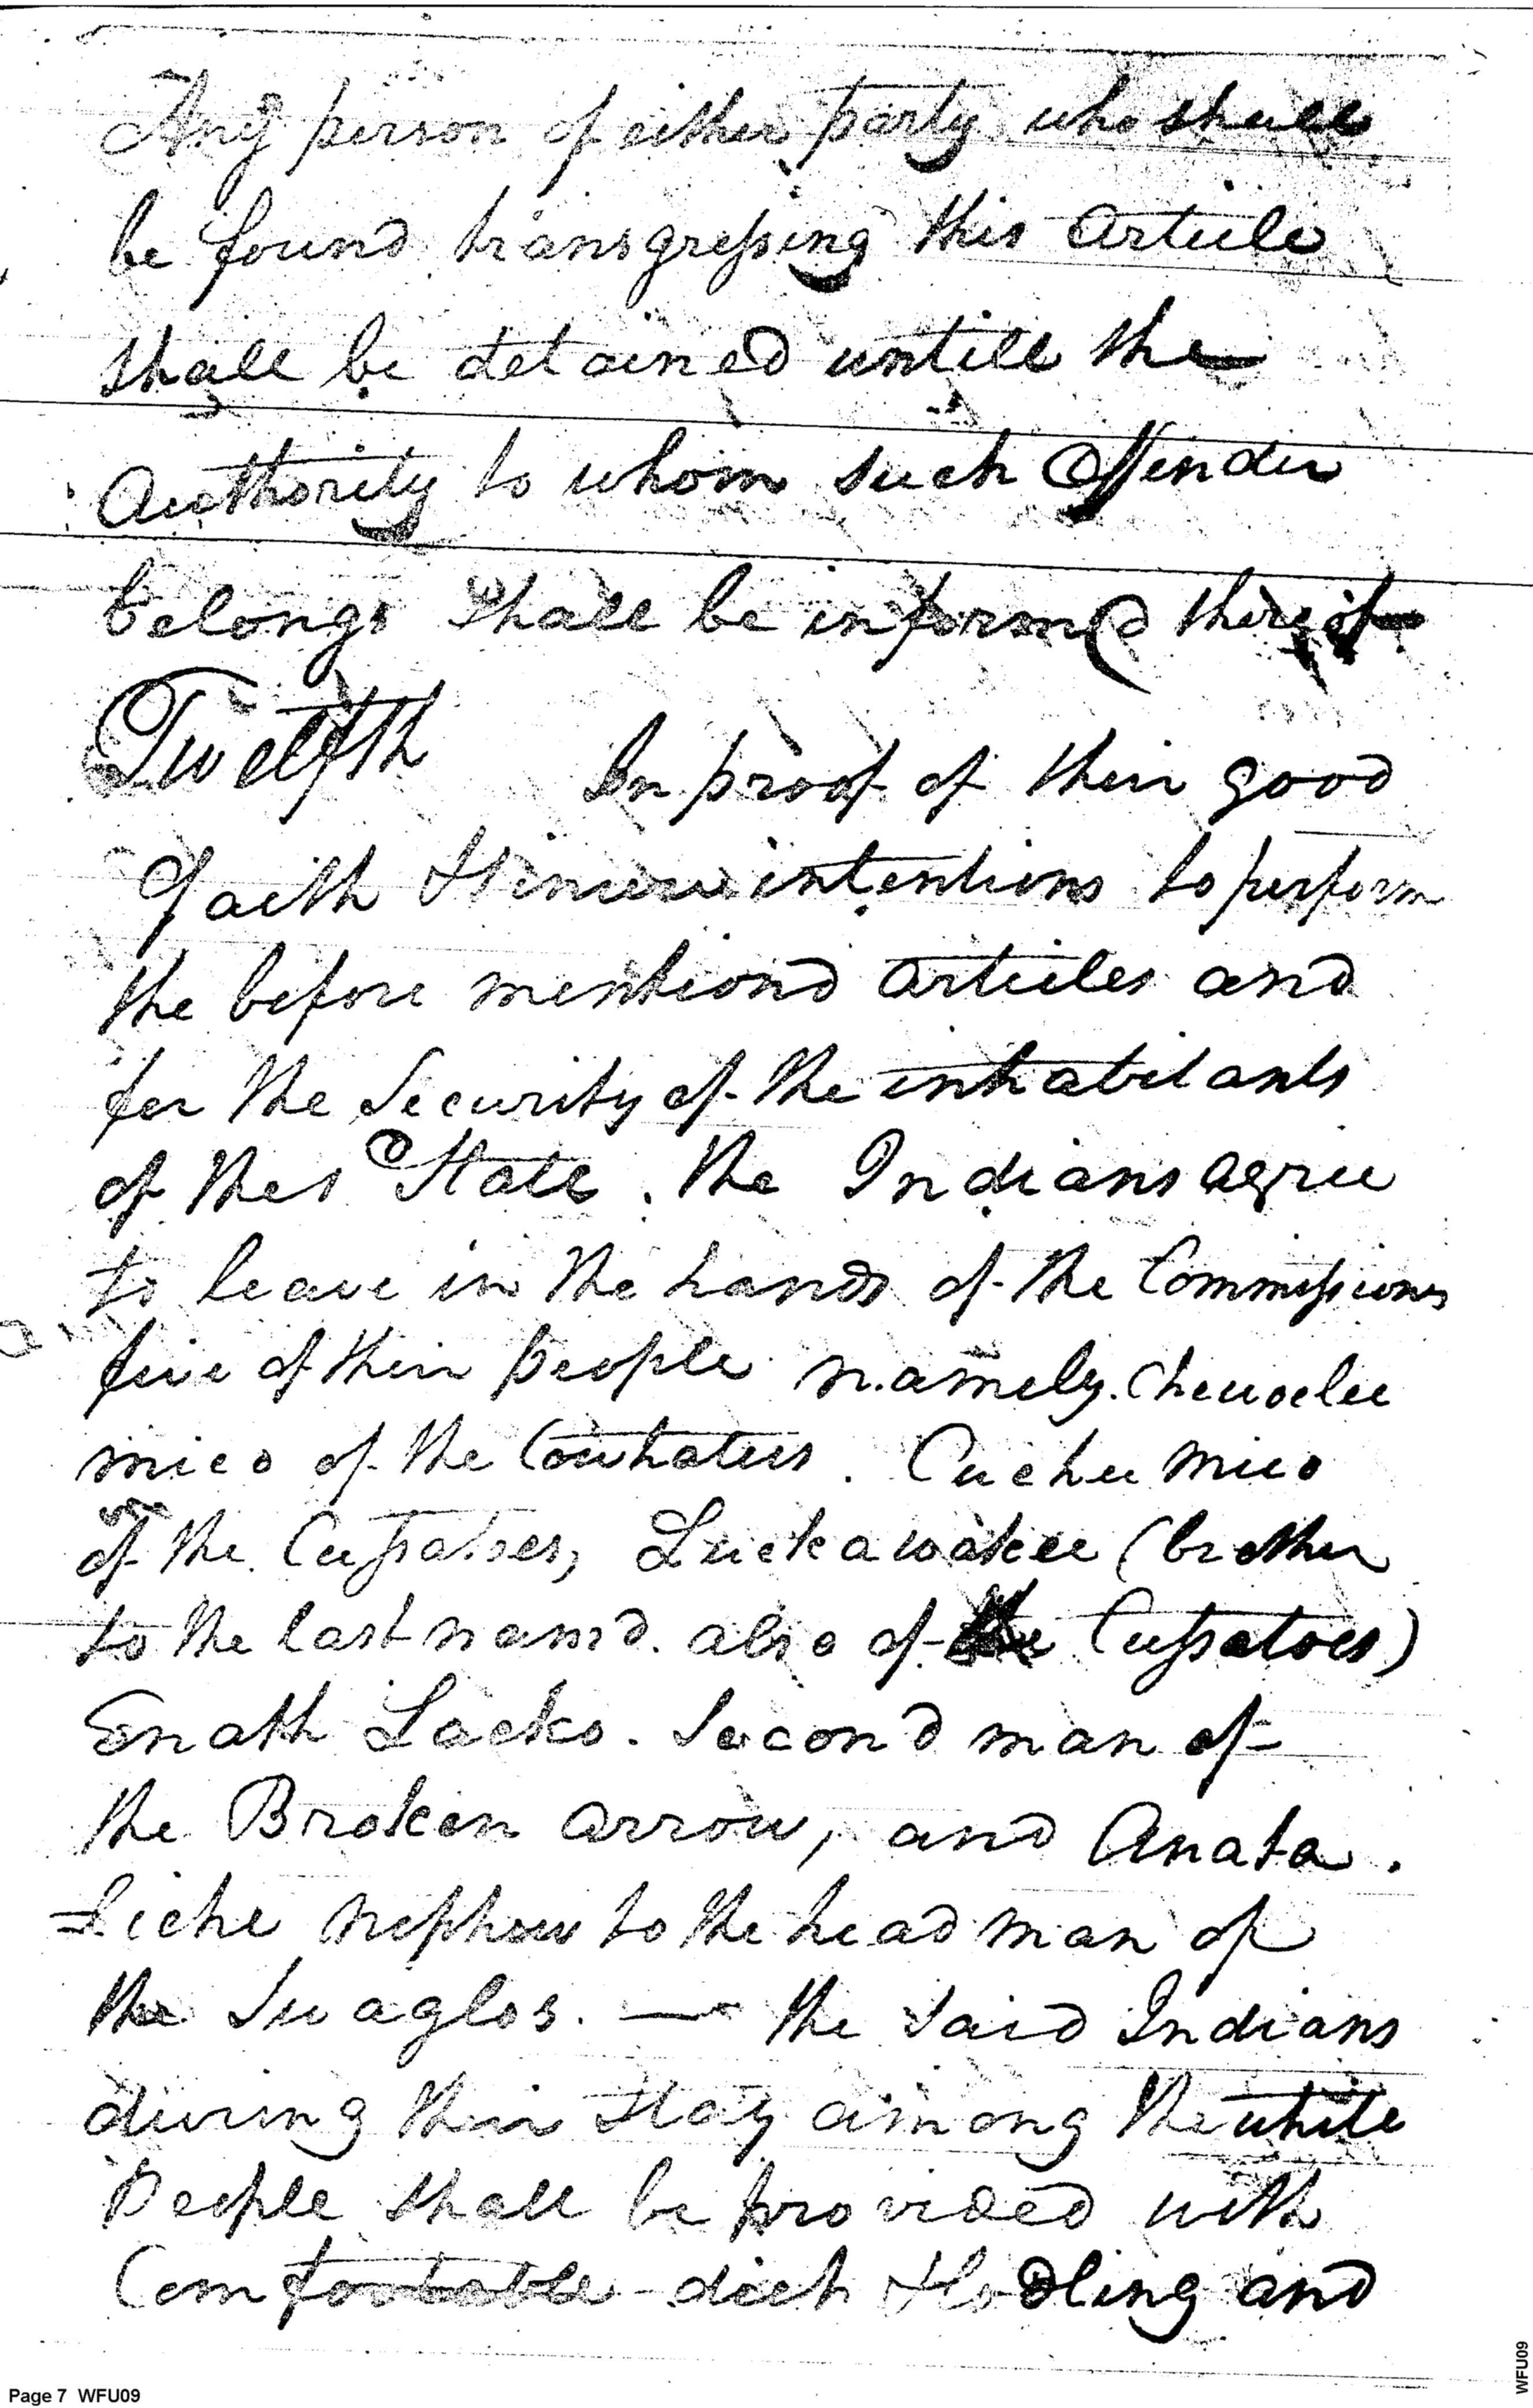 Any person of either party who shall
be found transgressing this Article
shall be detained untill the
Authority to whom such Offender
belongs shall be informed thereof
Twelfth In proof of their good
Faith & Sincere intentions to perform
the before mentiond articles and
for the Security of the inhabitants
of this State. the Indians agree
to leave in the hands of the Commissioners
five of their people namely. Chewoelee
mico of the Cowhatees. Cuchee Mico
of the Cussatoes, Luckawakee (brother
to the last namd. also of the Cussatoes)
Enath Lacko. Second man of
the Broken arrow, and Anata.
=liche Nephew to the head man of
the Swaglos. — the Said Indians
during their stay among the white
People shall be provided with
Comfortable diet & lodling and
Page 7 WFU09
WFU09